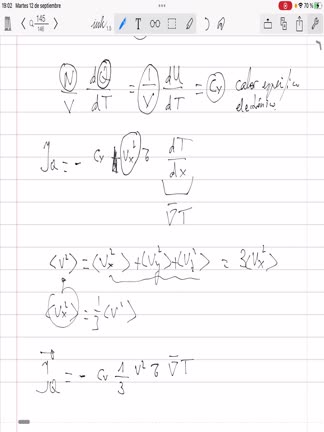 19:02 Martes 12 de septiembre 70 %
145
146
N/V dQ/dT = 1/V dU/dT = Cv calor específico
electrónico
J_Q = - Cv v_x² τ dT/dx
∇T
⟨v²⟩ = ⟨v_x²⟩ + ⟨v_y²⟩ + ⟨v_z²⟩ = 3⟨v_x²⟩
⟨v_x²⟩ = 1/3 ⟨v²⟩
J_Q = - Cv 1/3 v² τ ∇T